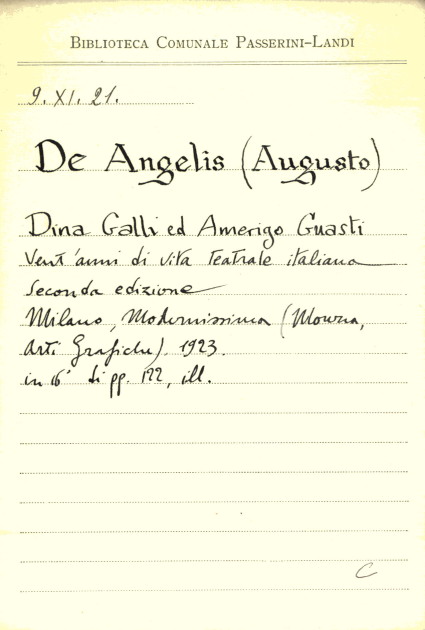 BIBLIOTECA COMUNALE PASSERINI-LANDI
9. XI. 21.
De Angelis (Augusto)
Dina Galli ed Amerigo Guasti
Vent'anni di vita teatrale italiana
Seconda edizione
Milano, Modernissima (
Arti Grafiche). 1923.
in 16° di pp. 122, ill.
C